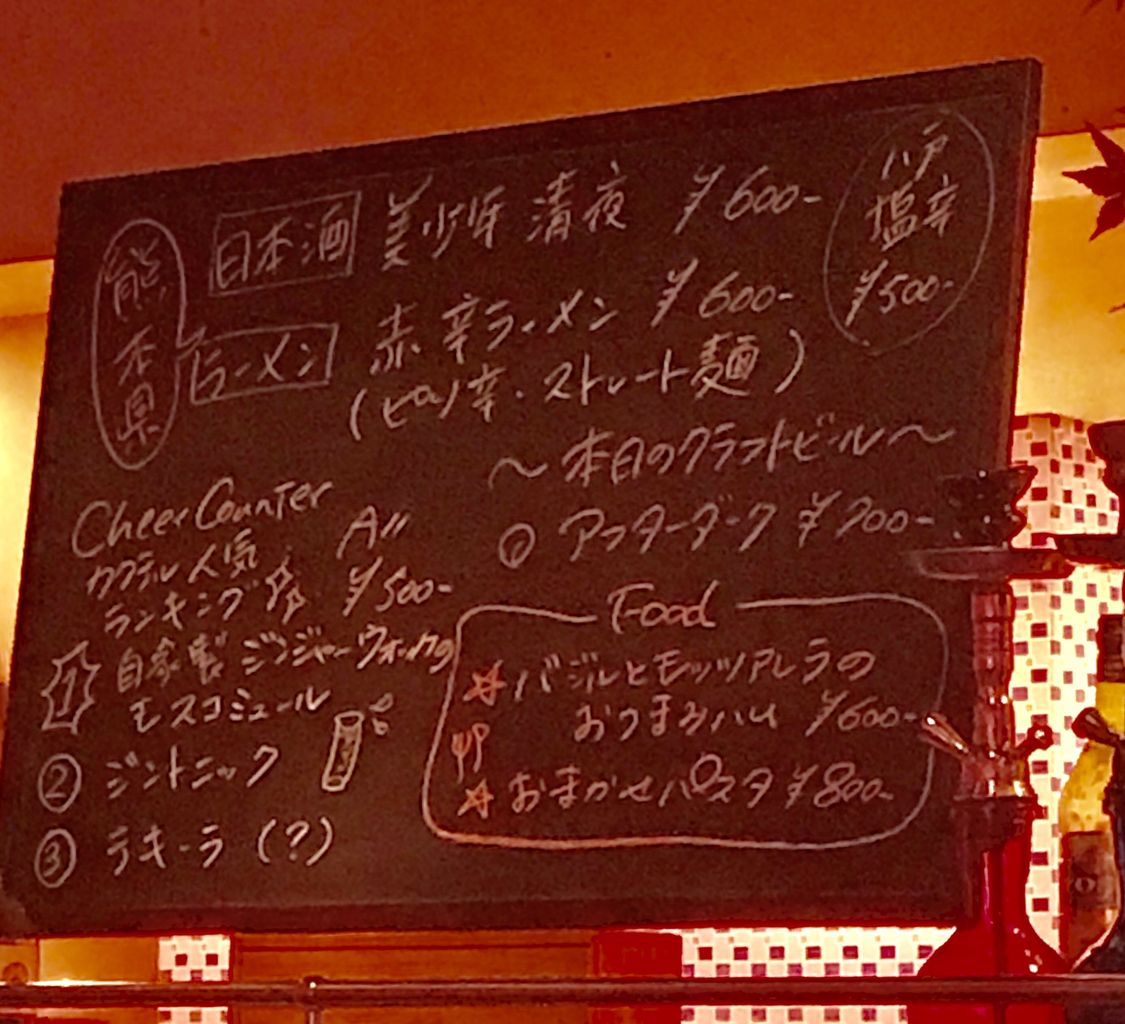 熊本県
日本酒 美少年 清夜 ¥600-
ラーメン 赤辛ラーメン ¥600-
(ピリ辛・ストレート麺)
八戸
塩辛
¥500-
Cheer Counter
カクテル人気 All
ランキング ¥500-
1 自家製ジンジャーウォッカの
モスコミュール
② ジントニック
③ テキーラ (?)
〜本日のクラフトビール〜
① アフターダーク ¥700-
Food
☆バジルとモッツァレラの
おつまみハム ¥600-
☆おまかせパスタ ¥800-